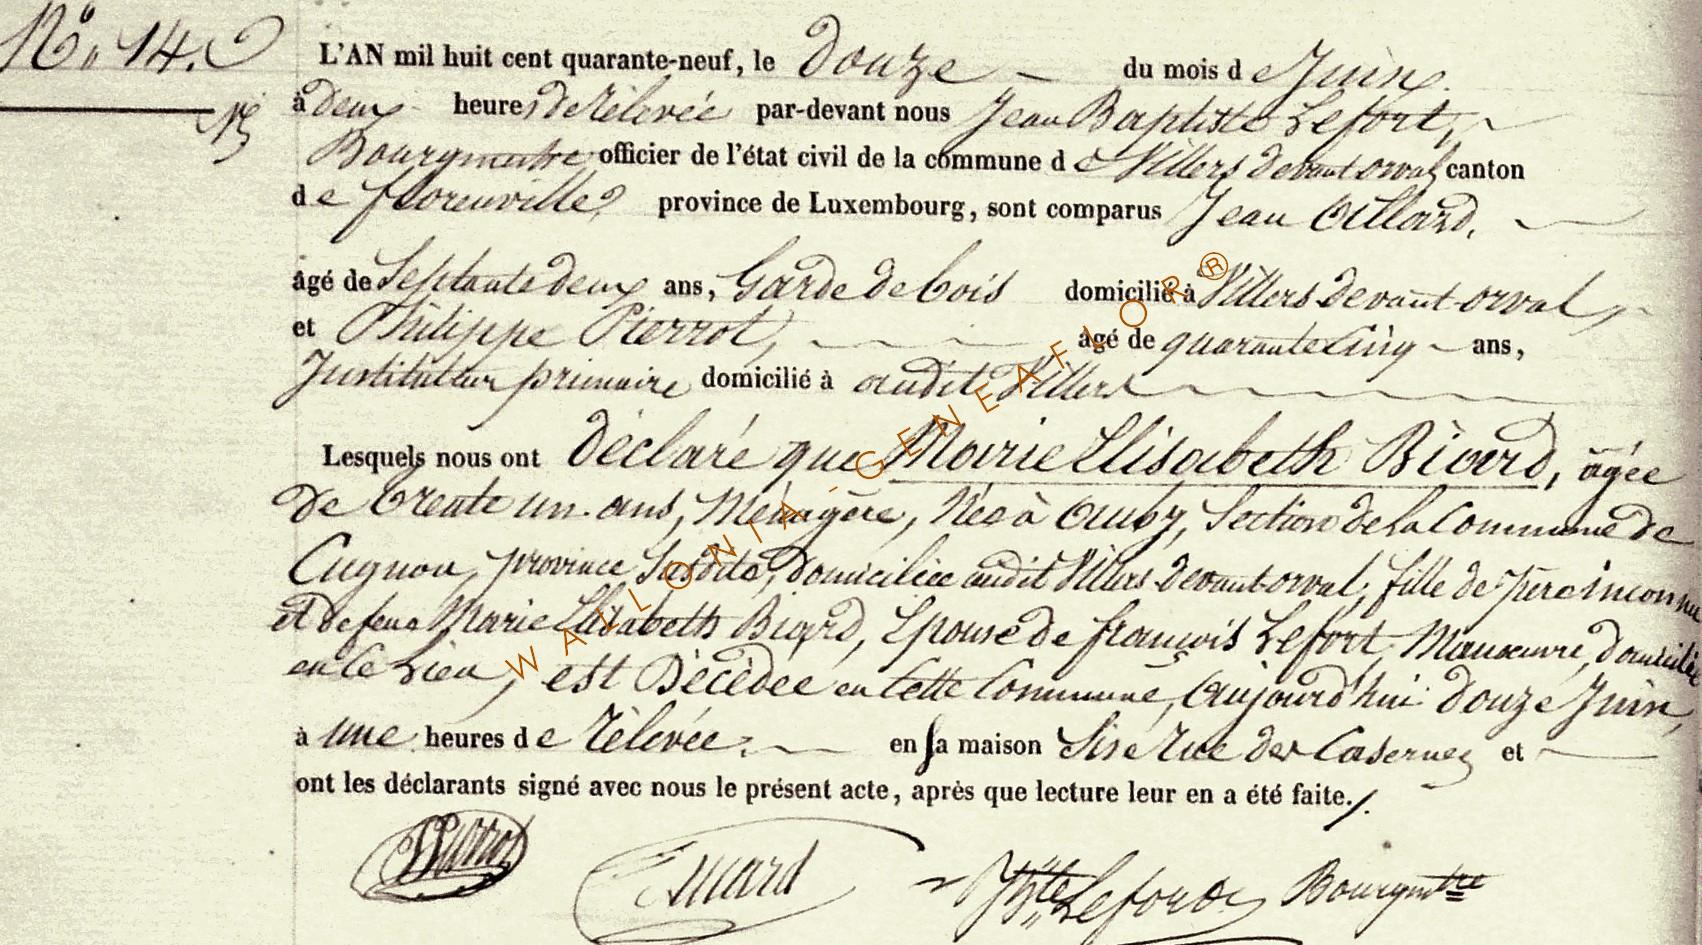 N° 14.
L'AN mil huit cent quarante-neuf, le douze du mois de Juin.
à deux heures de rélevée par-devant nous Jean Baptiste Lefort,
Bourgmestre officier de l'état civil de la commune de Villers devant orval canton
de florenville, province de Luxembourg, sont comparus Jean
âgé de Septante deux ans, Garde de bois domicilié à Villers devant-orval,
et Philippe Pierrot, âgé de quarante Cinq ans,
Instituteur primaire domicilié à audit Villers
Lesquels nous ont déclaré que Marie Elisabeth Biard, âgée
de trente un ans, Ménagère, Née à Auby, Section de la Commune de
Cugnon, province Susdite, domiciliée audit Villers-devant-orval, fille de père inconnu
et de feue Marie Elisabeth Biard, Epouse de françois Lefort, Manœuvre, domicilié
en ce Lieu, est Décédée en Cette Commune, Aujourd'hui douze Juin,
à une heures de rélevée. en sa maison Sise rue des Casernes et
ont les déclarants signé avec nous le présent acte, après que lecture leur en a été faite./.
Pierrot
JBte Lefort Bourgmtre
WALLONIA-GENEAFLOR®